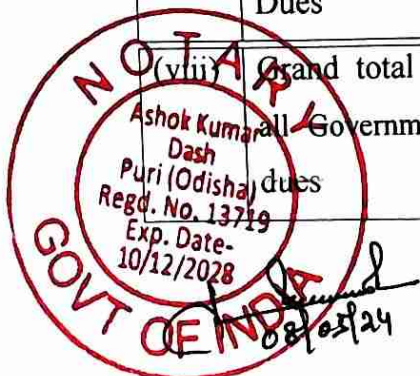 Dues
(viii) Grand total
all Governm
dues
NOTARY
Ashok Kumar
Dash
Puri (Odisha)
Regd. No. 13719
Exp. Date-
10/12/2028
GOVT OF INDIA
08/05/24